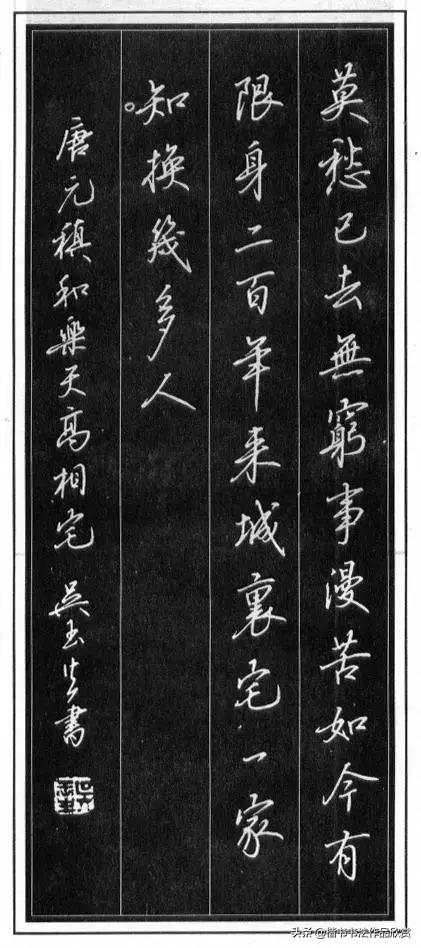 莫愁已去無窮事漫苦如今有
限身二百年来城裏宅一家
知换幾多人
唐元稹和樂天高相宅 吴玉生書
头条@楷书书法作品欣赏